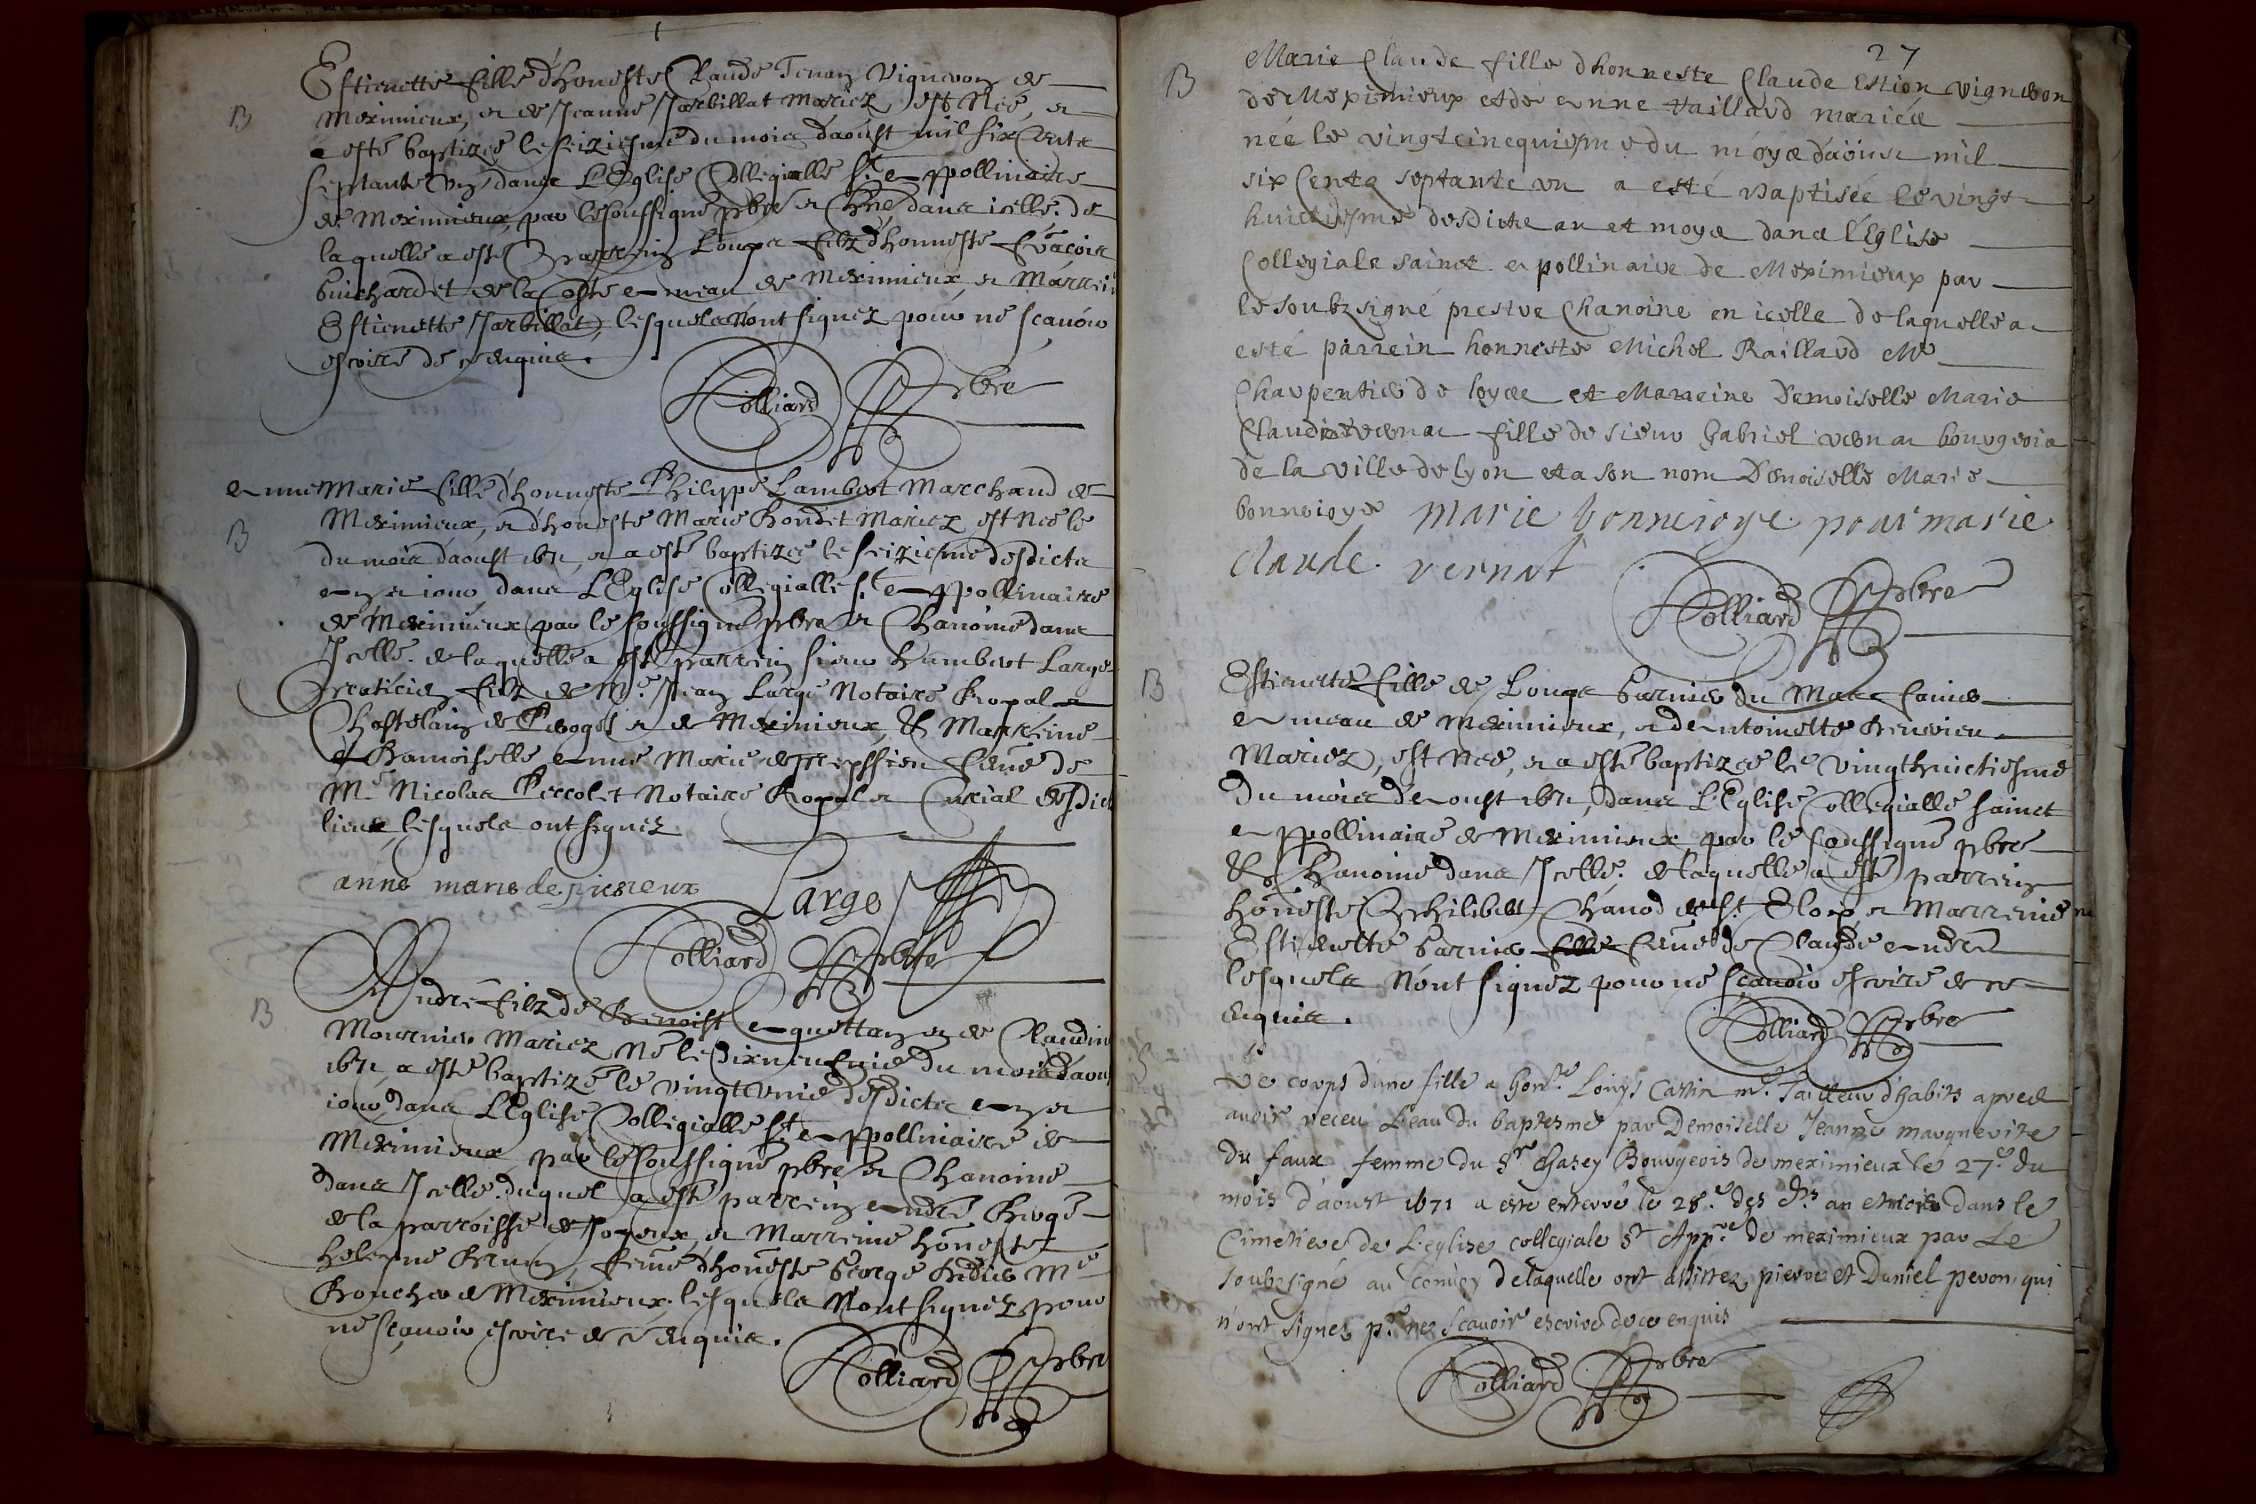 Estiennette fille d'honneste Claude Tenaz Vigneron de
B
Meximieux, et de Jeanne Jarbillat Mariez est Née, et
a esté baptizee le seiziesme du mois d'aoust mil six Cents
septante Un dans L'Eglise Collegialle St Appollinaire
de Meximieux, par le soussigné pbre et Chne dans icelle. de
laquelle a esté parrein Loups filz d'honneste
Guichardet de la Coste Anneau de Meximieux et Marrein
Estiennette Jarbillat, lesquels Nont signez pour ne scavoir
escrire de ce Enquis.
Colliard pbre
Anne Marie fille d'honneste Philippe Lambert Marchand de
B
Meximieux, et d'honeste Marie Bondet Mariez est Née le
du mois d'aoust 1671, et a esté baptizee le seiziesme desdicts
an et jour dans L'Eglise Collegialle St Appollinaire
de Meximieux par le soussigné pbre et Chanoine dans
Icelle. de laquelle a esté parrein sieur Humbert Large
Praticien filz de Me Jean Large Notaire Royal et
Chastelain de Peroges et de Meximieux, & Marreine
Damoiselle Anne Marie femme de
Me Nicolas Peccolet Notaire Royal et Curial desdict
lieux, lesquels ont signez
anne marie de Large
Colliard pbre
B
André filz de Benoist Anquettaz et de Claudine
Mournier Mariez Né le Dixneufvie du mois d'aoust
1671, a esté baptizé le vingt Unie desdicts an et
jour, dans L'Eglise Collegialle St Appollinaire de
Meximieux par le soussigné pbre et Chanoine
dans Icelle. duquel a esté parrein André Bergé
de la parroisse de Joyeux, et Marreine honeste
Heleyne Brun, feme d'honeste George Me
Boucher de Meximieux. lesquels Nont signez pour
ne scavoir escrire de ce Enquis.
Colliard pbre
27
B
Marie Claude fille d honneste Claude Estion Vigneron
de Meximieux et de Anne Raillard mariés
née le vingt cinequiesme du moys d'aoust mil
six Cents septante un a esté Baptisée le vingt
huictiesme desdicts an et moys dans l'Eglise
Collegiale sainct Appollinaire de Meximieux par
le soubzsigné prestre Chanoine en icelle de laquelle a
esté parrein honneste Michel Raillard Me
Charpentier de loyes et Marreine Demoiselle Marie
Claudine vernat fille de sieur Gabriel vernat bourgeois
de la ville de lyon et a son nom Demoiselle Marie
bonneioye marie bonneioye pour marie
claude vernat
Colliard pbre
B
Estiennette fille de Loups Garnier du Mas
Anneau de Meximieux, et de Antoinette
Mariez, est Née, et a esté baptizee le vingthuictiesme
du mois de Aoust 1671, dans L'Eglise Collegialle sainct
Appollinaire de Meximieux par le soussigné pbre
& Chanoine dans Icelle. de laquelle a esté parrein
honeste Philibert Chanod de St Eloy, et Marreine
Estiennette Garnier feme de Claude André
lesquels N'ont signez pour ne scavoir escrire de ce
Enquis.
Colliard pbre
Le corps d'une fille a honte Louys Cassin me Tailleur d'habits apres
avoir receu L'eau du baptesme par Demoiselle Jeanne marguerite
du faux femme du Sr Chasey Bourgeois de meximieux le 27e du
mois d'aoust 1671 a esté enterré le 28e des dts an et mois dans le
Cimetiere de L'eglise collegiale St Appre de meximieux par Le
soubzsigné au convoy de laquelle ont assistez pierre et Daniel peron qui
n'ont signez pr ne Scavoir escrire de ce enquis
Colliard pbre